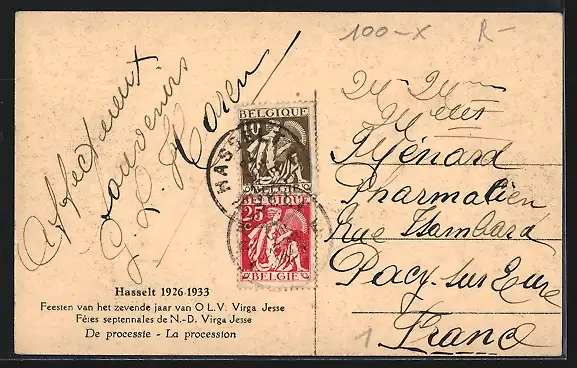 100-x R-
Affectueux
souvenirs
BELGIQUE
10
HASSELT
BELGIË
BELGIQUE
25
BELGIË
Ménard
Pharmacien
Rue Isambard
Pacy sur Eure
France
1
Hasselt 1926-1933
Feesten van het zevende jaar van O L.V. Virga Jesse
Fêtes septennales de N.-D. Virga Jesse
De processie - La procession